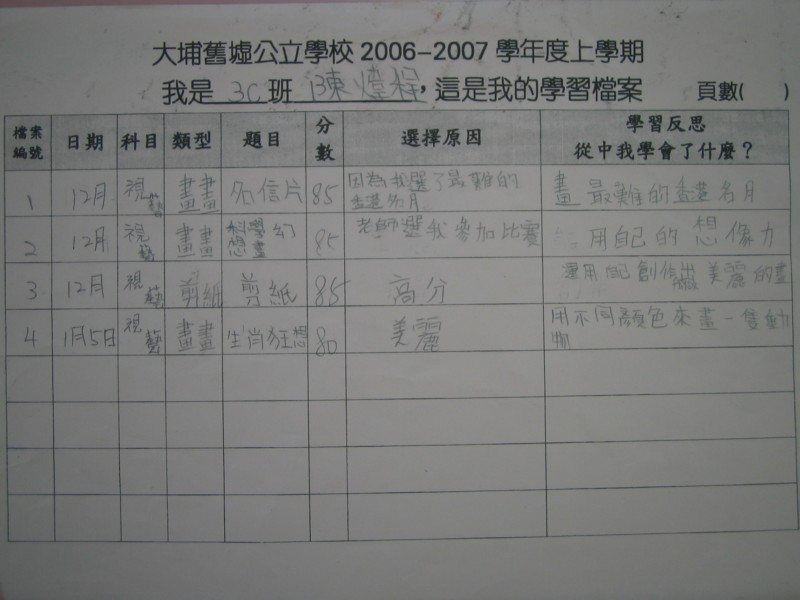 大埔舊墟公立學校 2006-2007 學年度上學期
我是 3C 班 陳煒程，這是我的學習檔案 頁數( )
檔案編號 日期 科目 類型 題目 分數 選擇原因 學習反思 從中我學會了什麼？
1 12月 視藝 畫畫 名信片 85 因為我選了最難的畫選名月 畫最難的畫名月
2 12月 視藝 畫畫 科學幻想畫 85 老師選我參加比賽 用自己的想像力
3 12月 視藝 剪紙 剪紙 85 高分 運用自己創作出美麗的畫
4 1月5日 視藝 畫畫 生肖狂想 80 美麗 用不同顏色來畫一隻動物